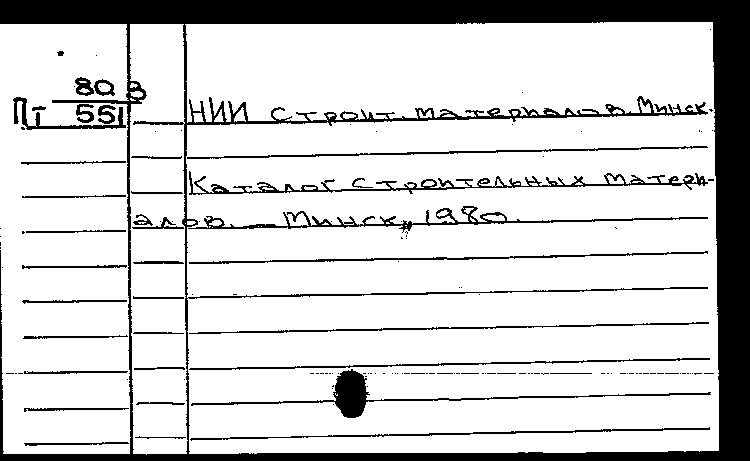 80 В
Пт 551
НИИ строит. материалов. Минск.
Каталог строительных матери-
алов. — Минск, 1980.